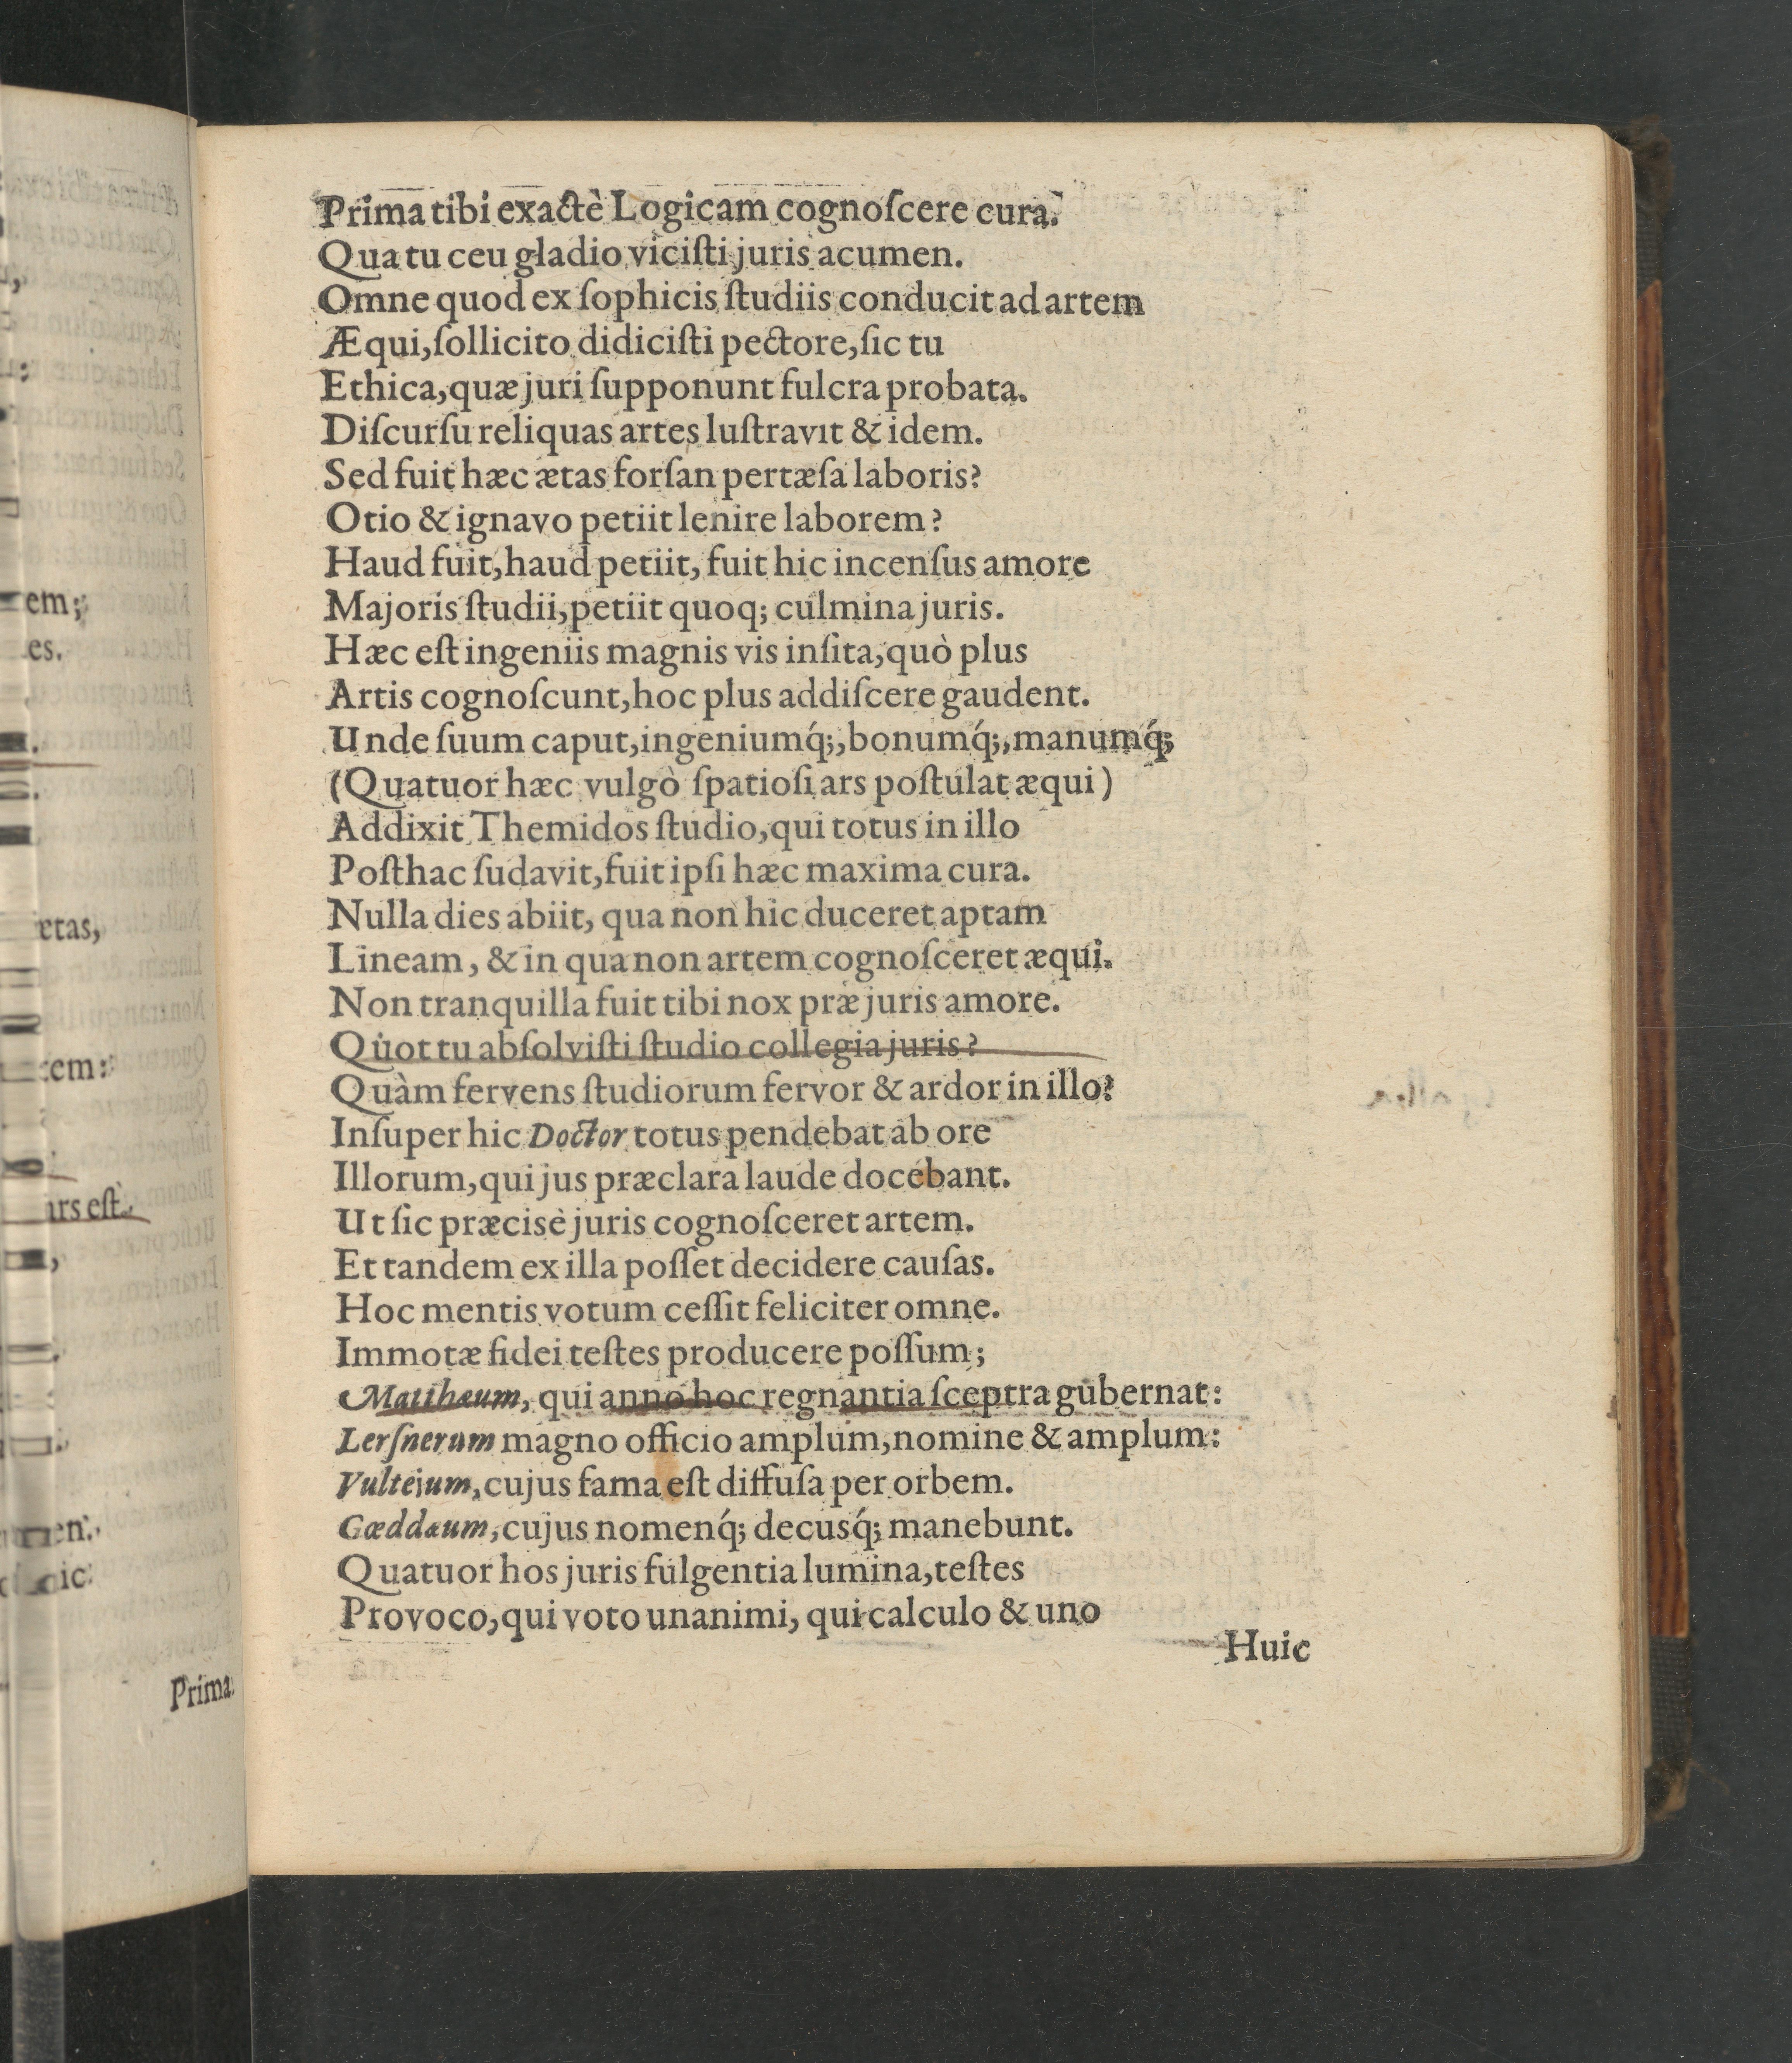 Prima tibi exactè Logicam cognoſcere cura.
Qua tu ceu gladio viciſti juris acumen.
Omne quod ex ſophicis ſtudiis conducit ad artem
Æqui, ſollicito didiciſti pectore, ſic tu
Ethica, quæ juri ſupponunt fulcra probata.
Diſcurſu reliquas artes luſtravit & idem.
Sed fuit hæc ætas forſan pertæſa laboris?
Otio & ignavo petiit lenire laborem?
Haud fuit, haud petiit, fuit hic incenſus amore
Majoris ſtudii, petiit quoq; culmina juris.
Hæc eſt ingeniis magnis vis inſita, quò plus
Artis cognoſcunt, hoc plus addiſcere gaudent.
Unde ſuum caput, ingeniumq́;, bonumq́;, manumq́;
(Quatuor hæc vulgò ſpatioſi ars poſtulat æqui)
Addixit Themidos ſtudio, qui totus in illo
Poſthac ſudavit, fuit ipſi hæc maxima cura.
Nulla dies abiit, qua non hic duceret aptam
Lineam, & in qua non artem cognoſceret æqui.
Non tranquilla fuit tibi nox præ juris amore.
Quot tu abſolviſti ſtudio collegia juris?
Quàm fervens ſtudiorum fervor & ardor in illo?
Inſuper hic Doctor totus pendebat ab ore
Illorum, qui jus præclara laude docebant.
Ut ſic præcisè juris cognoſceret artem.
Et tandem ex illa poſſet decidere cauſas.
Hoc mentis votum ceſſit feliciter omne.
Immotæ fidei teſtes producere poſſum;
Matthæum, qui anno hoc regnantia ſceptra gubernat:
Lerſnerum magno officio amplum, nomine & amplum:
Vulteium, cujus fama eſt diffuſa per orbem.
Gœddæum, cujus nomenq́; decusq́; manebunt.
Quatuor hos juris fulgentia lumina, teſtes
Provoco, qui voto unanimi, qui calculo & uno
Huic
em;
es.
etas,
tem:
ars eſt.
en.
ic:
Prima